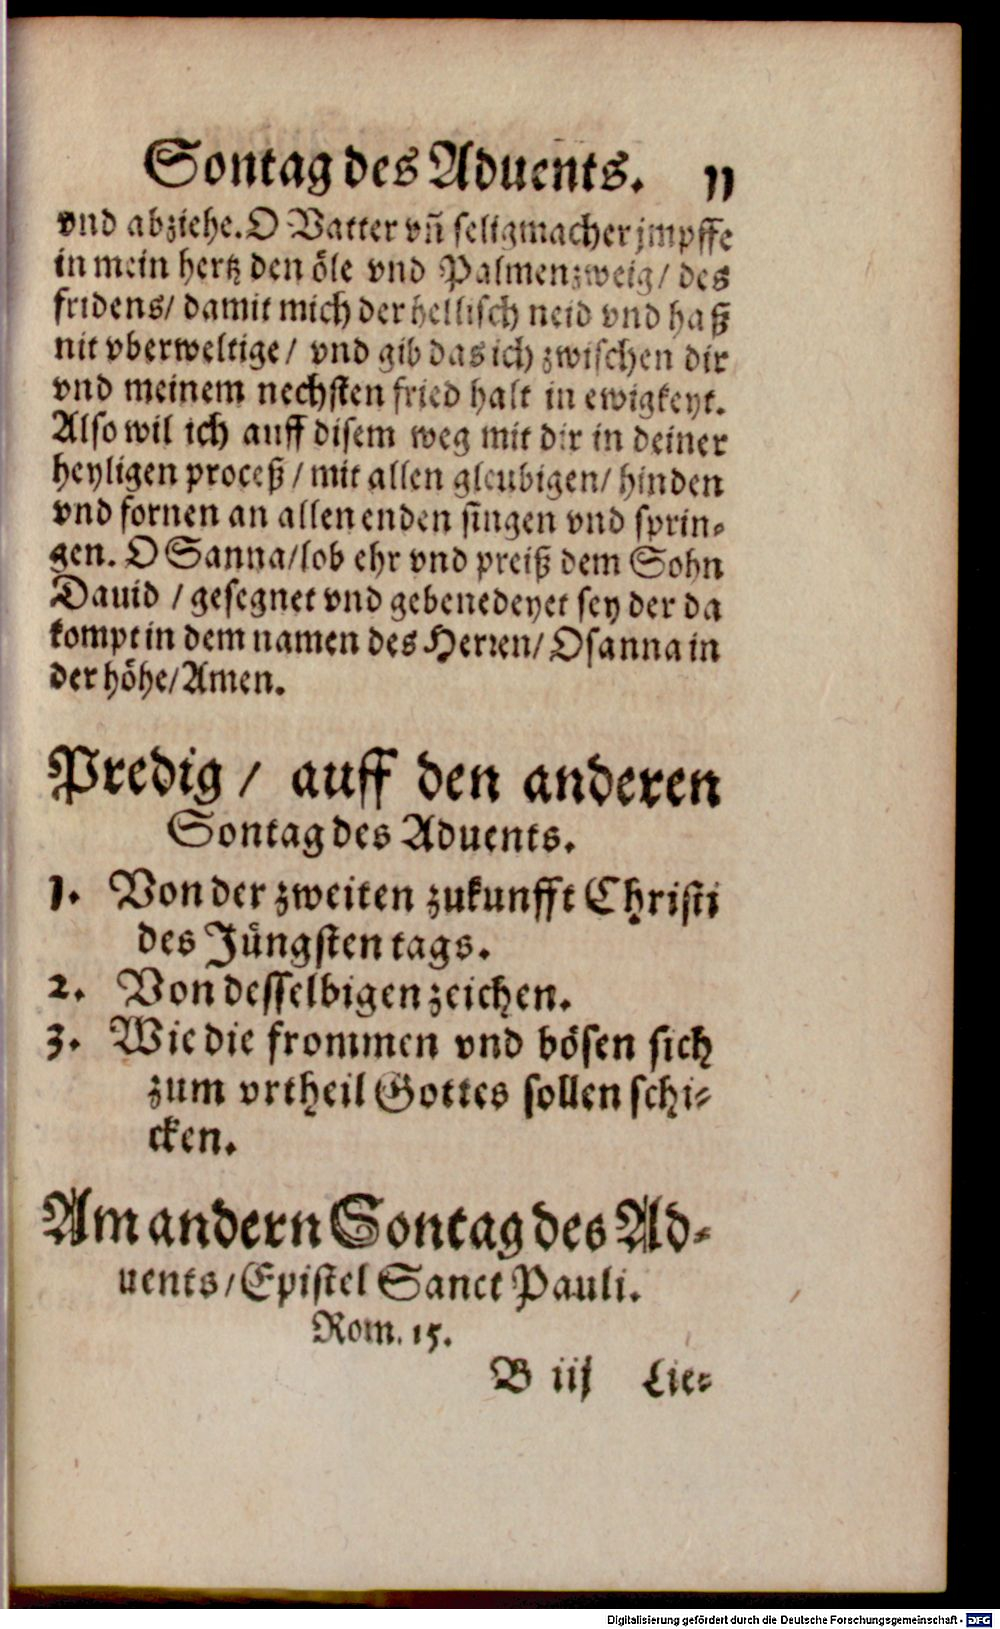 Sontag des Aduents. 11
vnd abziehe. O Vatter vñ seligmacher jmpffe
in mein hertz den öle vnd Palmenzweig/ des
fridens/ damit mich der hellisch neid vnd haß
nit vberweltige/ vnd gib das ich zwischen dir
vnd meinem nechsten fried halt in ewigkeyt.
Also wil ich auff disem weg mit dir in deiner
heyligen proceß/ mit allen gleubigen/ hinden
vnd fornen an allen enden singen vnd sprin-
gen. O Sanna/ lob ehr vnd preiß dem Sohn
Dauid / gesegnet vnd gebenedeyet sey der da
kompt in dem namen des Herren/ Osanna in
der höhe/ Amen.
Predig / auff den anderen
Sontag des Aduents.
1. Von der zweiten zukunfft Christi
des Jüngsten tags.
2. Von desselbigen zeichen.
3. Wie die frommen vnd bösen sich
zum vrtheil Gottes sollen schi-
cken.
Am andern Sontag des Ad-
uents/ Epistel Sanct Pauli.
Rom. 15.
B iij Lie-
Digitalisierung gefördert durch die Deutsche Forschungsgemeinschaft - DFG